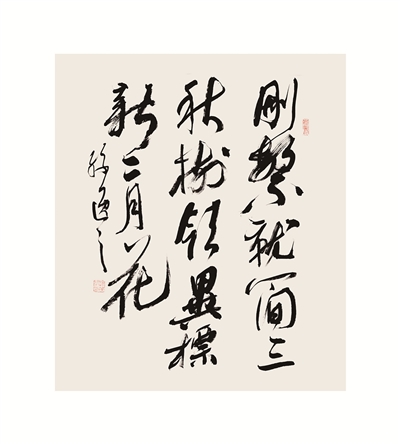 刪繁就簡三
秋樹領異標
新二月花